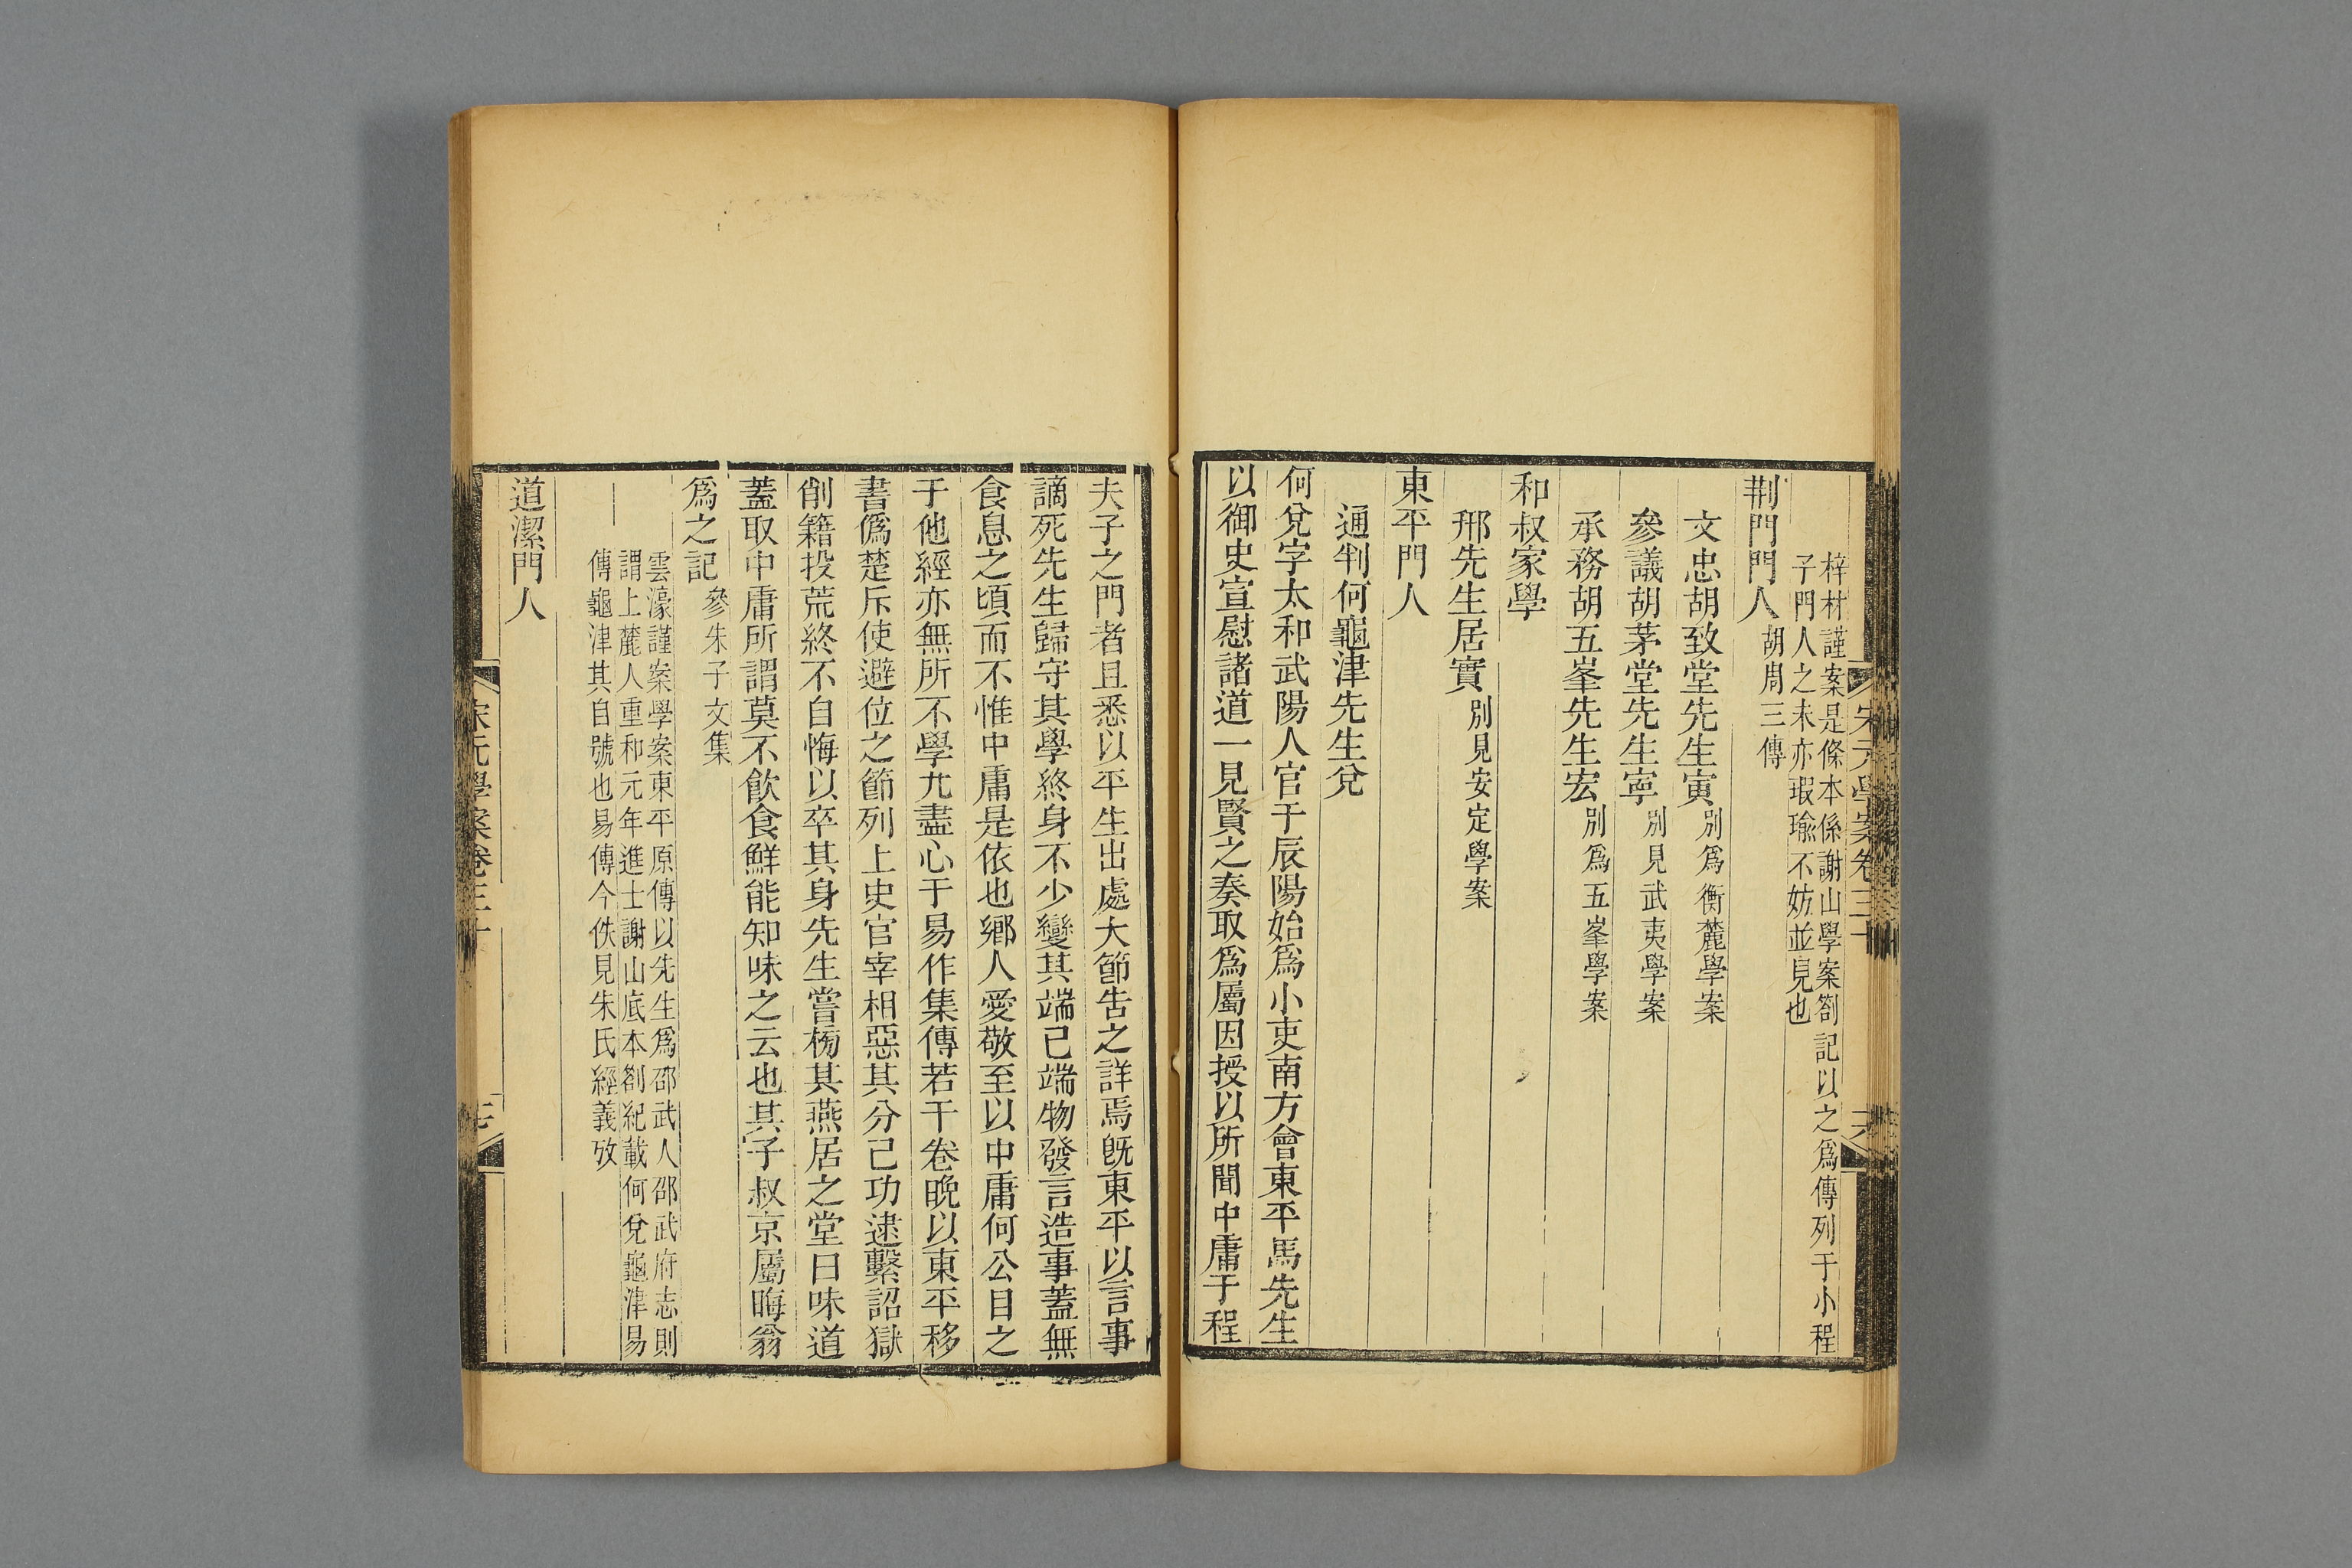 宋元學案卷三十
梓材謹案是條本係謝山學案劄記以之爲傳列于小程
子門人之末亦瑕瑜不妨並見也
荆門門人胡周三傳
文忠胡致堂先生寅別爲衡麓學案
參議胡茅堂先生寧別見武夷學案
承務胡五峯先生宏別爲五峯學案
和叔家學
邢先生居實別見安定學案
東平門人
通判何龜津先生兌
何兌字太和武陽人官于辰陽始爲小吏南方會東平馬先生
以御史宣慰諸道一見賢之奏取爲屬因授以所聞中庸于程
夫子之門者且悉以平生出處大節告之詳焉旣東平以言事
謫死先生歸守其學終身不少變其端己端物發言造事蓋無
食息之頃而不惟中庸是依也鄉人愛敬至以中庸何公目之
于他經亦無所不學尤盡心于易作集傳若干卷晚以東平移
書僞楚斥使避位之節列上史官宰相惡其分己功逮繫詔獄
削籍投荒終不自悔以卒其身先生嘗榜其燕居之堂曰味道
蓋取中庸所謂莫不飮食鮮能知味之云也其子叔京屬晦翁
爲之記參朱子文集
雲濠謹案學案東平原傳以先生爲邵武人邵武府志則
謂上麓人重和元年進士謝山底本劄紀載何兌龜津易
傳龜津其自號也易傳今佚見朱氏經義攷
道潔門人
宋元學案卷三十